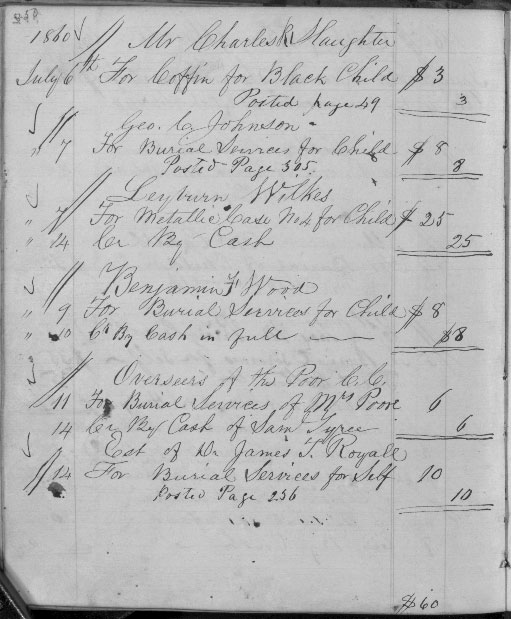 1860 Mr Charles R Slaughter
July 6th For Coffin for Black Child $ 3
Posted page 49 3
Geo. C. Johnson
" 7 For Burial Services for Child $ 8
Posted Page 305 8
Leyburn Wilkes
" 7 For Metallic Case No 4 for Child $ 25
" 14 Cr By Cash 25
Benjamin F Wood
" 9 For Burial Services for Child $ 8
" 10 Cr By Cash in full $8
Overseers of the Poor C.C.
" 11 For Burial Services of Mrs Poore 6
14 Cr By Cash of Saml Tyree 6
Est of Dr James T. Royall
" 14 For Burial Services for Self 10
Posted Page 256 10
$60